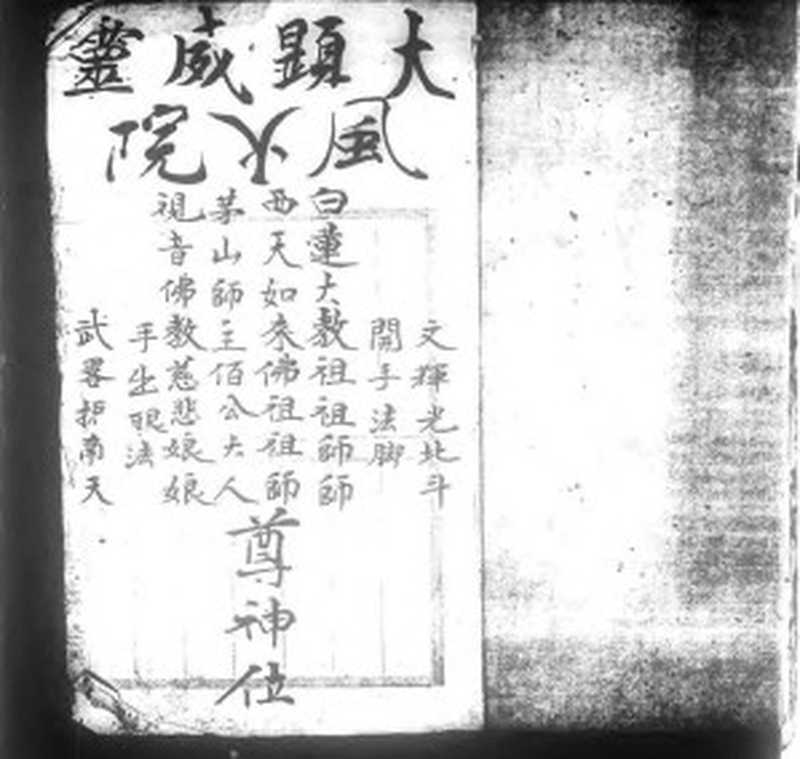 大顯威靈
風火院
文輝光北斗
開手法脚
白蓮大教祖祖師師
西天如來佛祖祖師
茅山師主伯公大人
視音佛教慈悲娘娘
手出眼法
武畧拒南天
尊神位